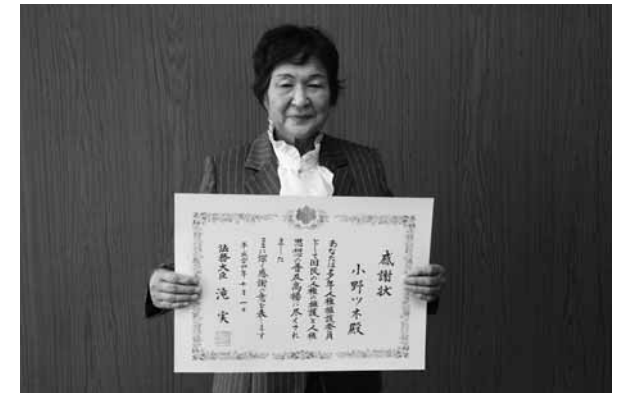 感謝状
小野ツ木殿
あなたは多年人権擁護委員
として国民の人権の擁護と人権
思想の普及高揚に尽くされ
ました
ここに深く感謝の意を表します
平成二十四年十月一日
法務大臣 滝実